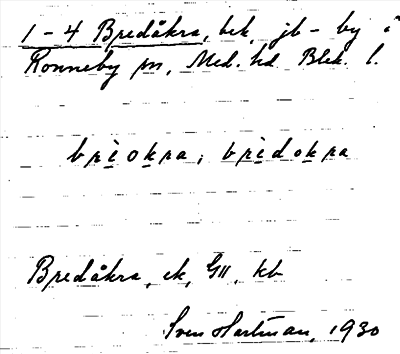 1-4 Bredåkra, bek, jb-by i
Ronneby sn, Med. hd. Blek. l.
brìokra; brìdokra
Bredåkra, ek, GII, kb
Sven Hartman, 1930